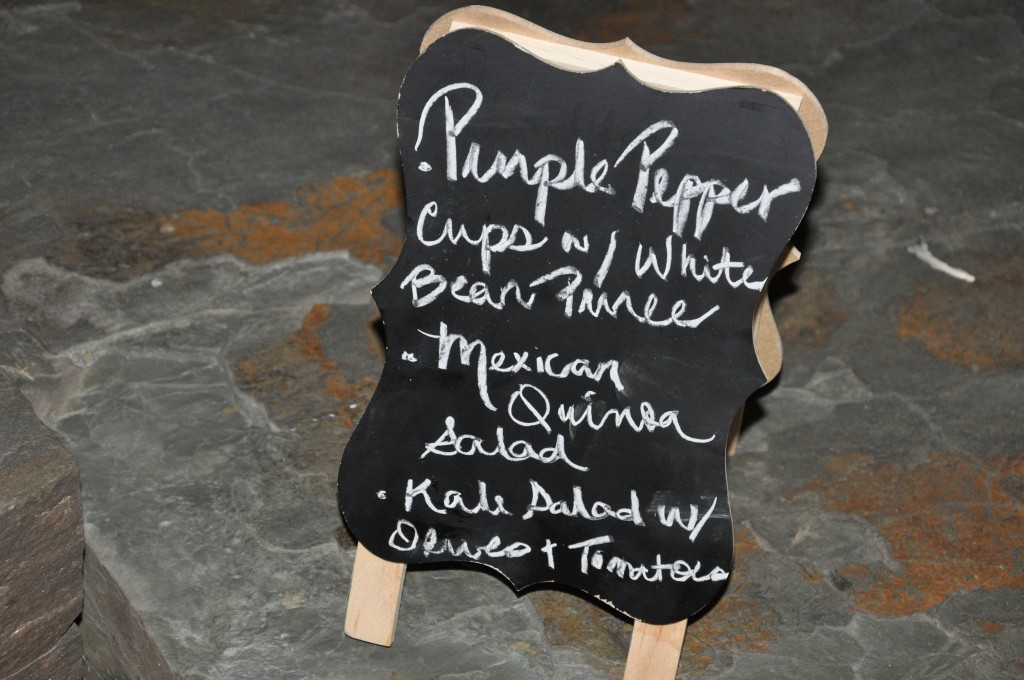 • Purple Pepper
Cups w/ White
Bean Puree
• Mexican
Quinoa
Salad
• Kale Salad w/
Olives + Tomatoes